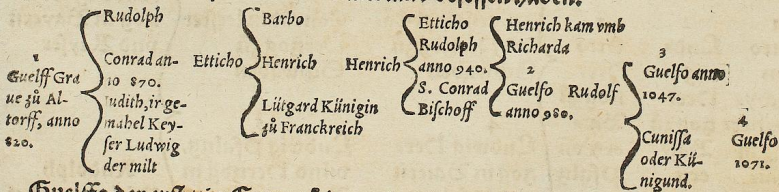 1
Guelff Gra
ue zů Al-
torff, anno
820.
Rudolph
Conrad an-
no 870.
Judith, ir ge-
mahel Key-
ser Ludwig
der milt
Etticho
Barbo
Henrich
Lütgard Künigin
zů Franckreich
Henrich
Etticho
Rudolph
anno 940.
S. Conrad
Bischoff
Henrich kam vmb
Richarda
2
Guelfo
anno 980.
Rudolf
3
Guelfo anno
1047.
Cunissa
oder Kü-
nigund.
4
Guelfo
1071.